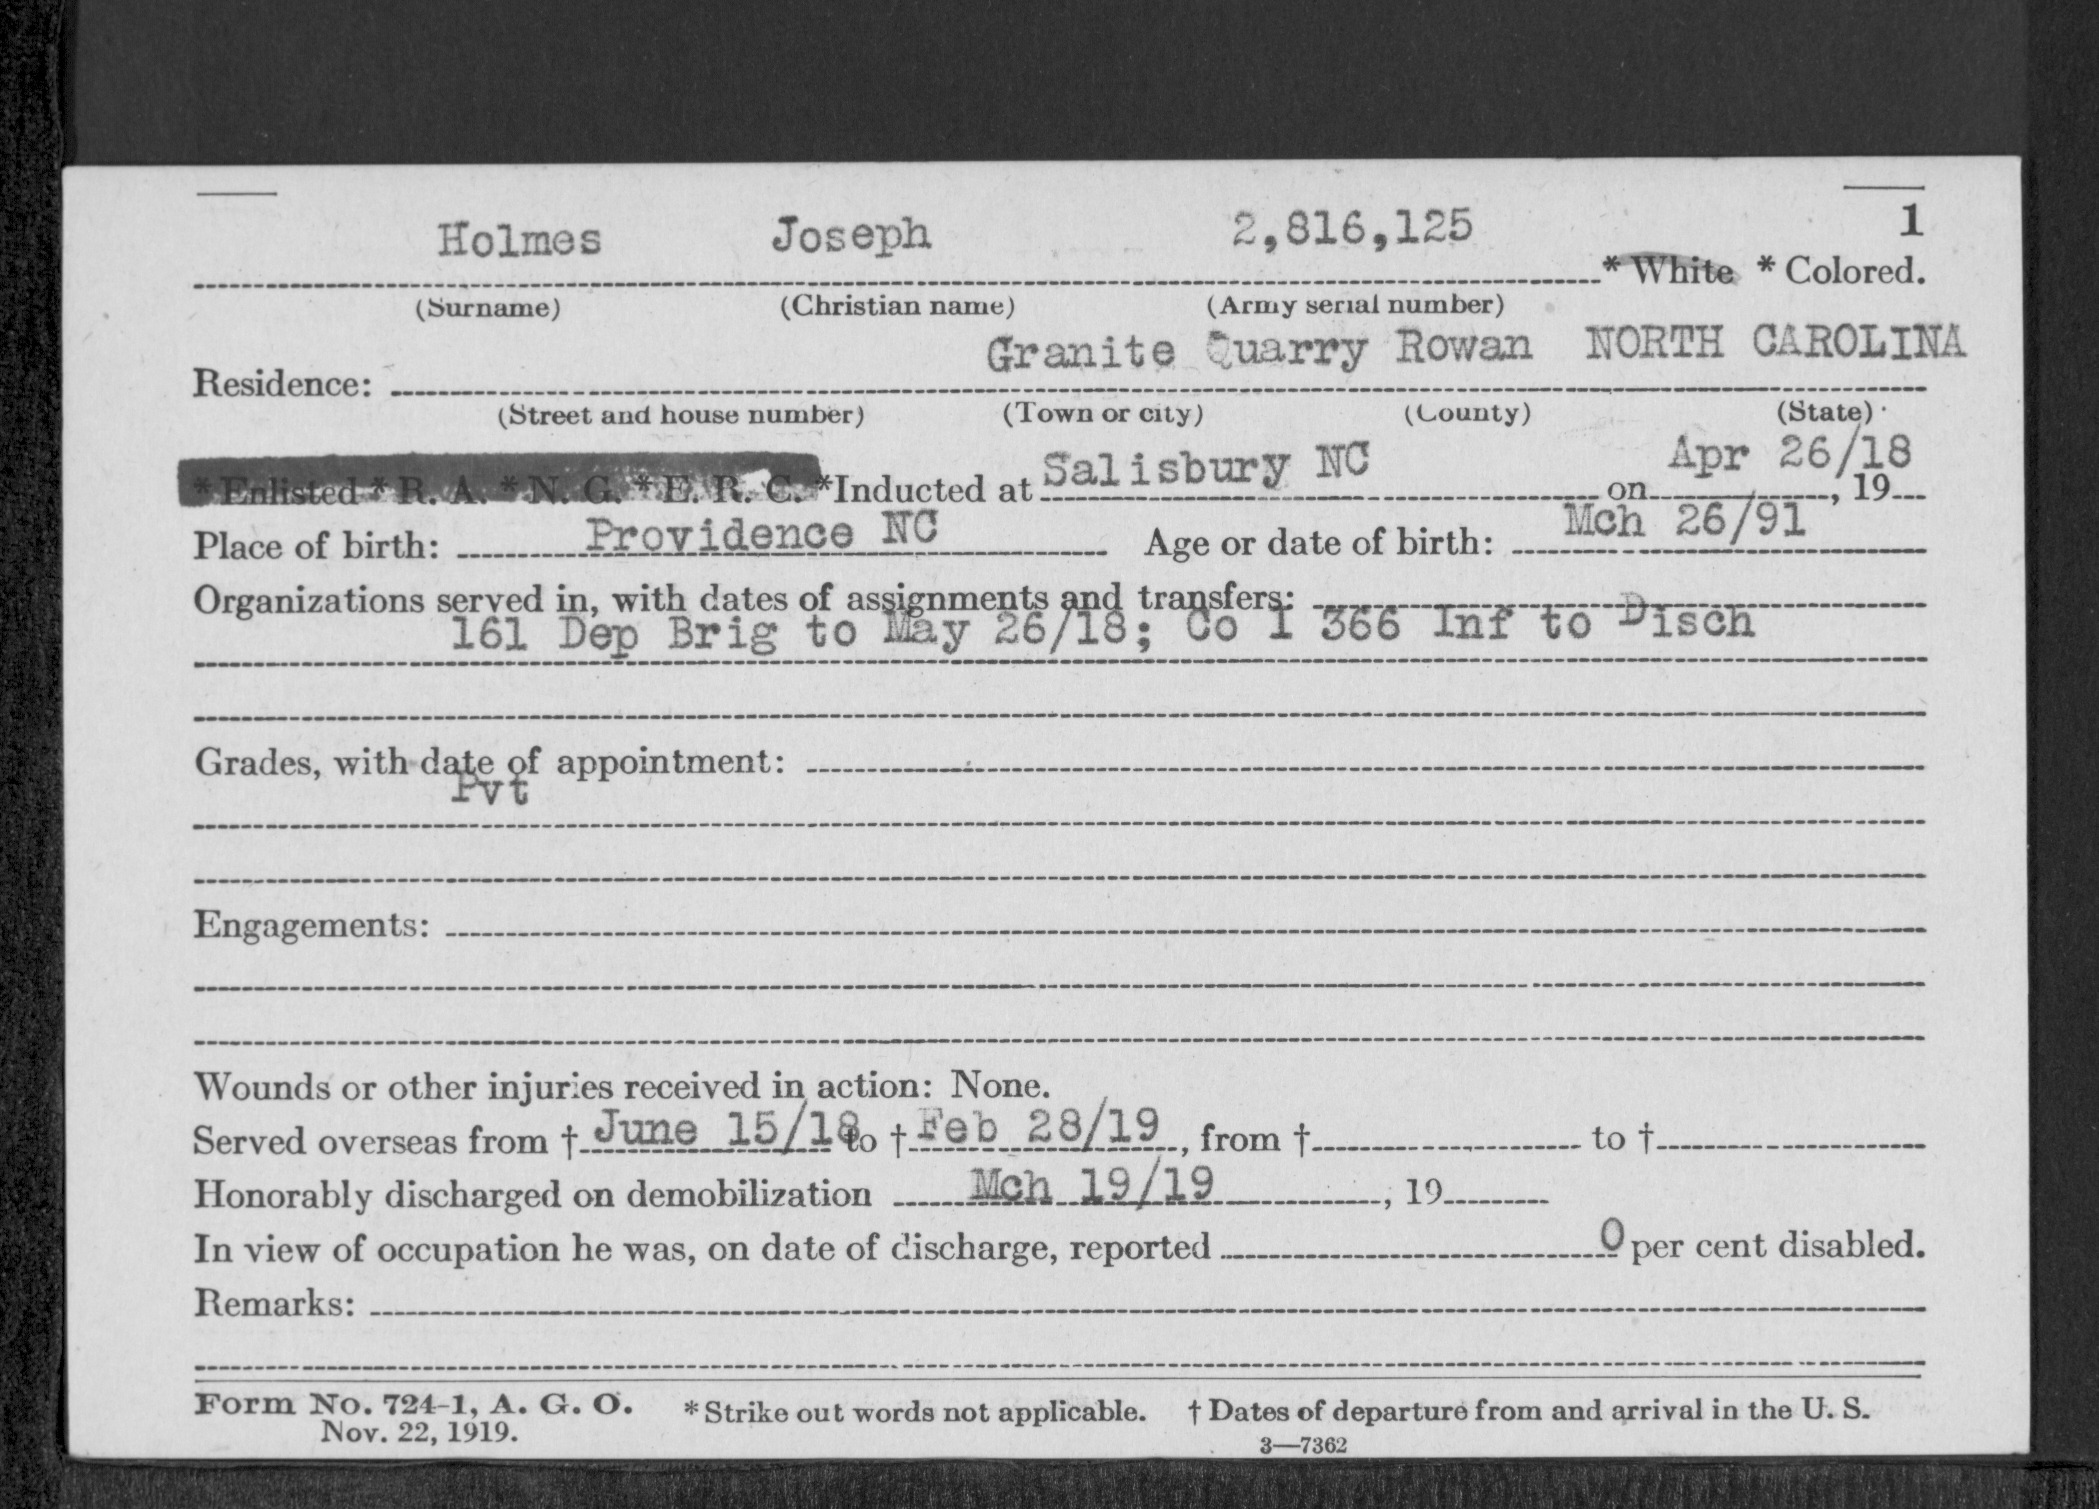 1
Holmes Joseph 2,816,125 * White * Colored.
(Surname) (Christian name) (Army serial number)
Granite Quarry Rowan NORTH CAROLINA
Residence:
(Street and house number) (Town or city) (County) (State)
* Enlisted * R. A. * N. G. * E. R. C. *Inducted at Salisbury NC on Apr 26/18, 19
Place of birth: Providence NC Age or date of birth: Mch 26/91
Organizations served in, with dates of assignments and transfers:
161 Dep Brig to May 26/18; Co I 366 Inf to Disch
Grades, with date of appointment:
Pvt
Engagements:
Wounds or other injuries received in action: None.
Served overseas from † June 15/18 to † Feb 28/19, from † to †
Honorably discharged on demobilization Mch 19/19, 19
In view of occupation he was, on date of discharge, reported 0 per cent disabled.
Remarks:
Form No. 724-1, A. G. O. * Strike out words not applicable. † Dates of departure from and arrival in the U. S.
Nov. 22, 1919. 3—7362